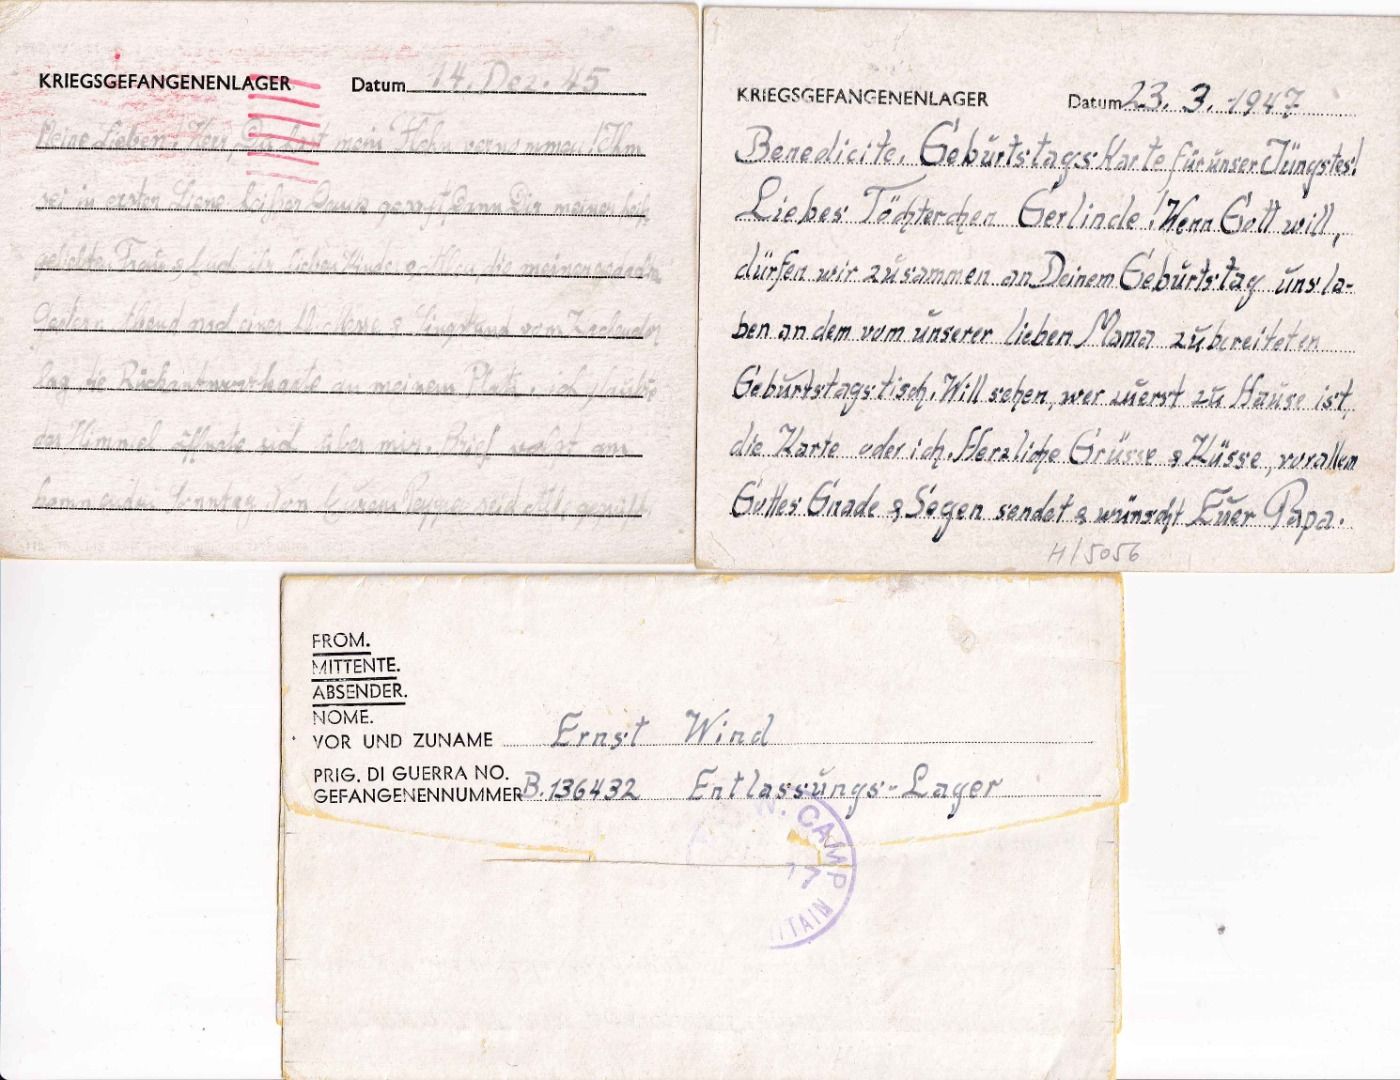 KRIEGSGEFANGENENLAGER Datum 14. Dez. 45
Meine Lieben! Herr, Du hast mein Flehn vernommen! Ihm
sei in erster Liene heißer Dank gesagt, dann Dir meiner heiß
geliebten Frau & Euch ihr lieben Kinder & Allen, die meiner
Gestern Abend nach einer
lag die Rückantwortkarte an meinem Platz, ich glaubte
der Himmel öffnete sich über mir. Brief folgt am
kommenden Sonntag. Von Eurem Pappa seid Alle gegrüßt.
KRIEGSGEFANGENENLAGER Datum 23. 3. 1947
Benedicite. Geburtstags Karte für unser Jüngstes!
Liebes Töchterchen Gerlinde! Wenn Gott will,
dürfen wir zusammen an Deinem Geburtstag uns la-
ben an dem vom unserer lieben Mama zubereiteten
Geburtstagstisch. Will sehen, wer zuerst zu Hause ist,
die Karte oder ich. Herzliche Grüsse & Küsse, vorallem
Gottes Gnade & Segen sendet & wünscht Euer Papa.
H/5056
FROM.
MITTENTE.
ABSENDER.
NOME.
VOR UND ZUNAME Ernst Wind
PRIG. DI GUERRA NO.
GEFANGENENNUMMER B.136432 Entlassungs-Lager
W. CAMP
17